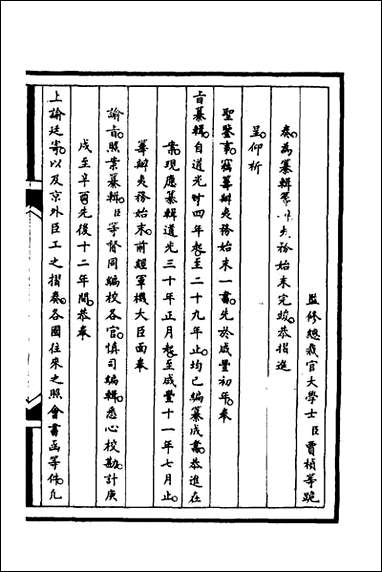 監修總裁官大學士臣賈楨等跪
奏為纂輯籌辦夷務始末完竣恭摺進
呈仰祈
聖鑒事竊籌辦夷務始末一書先於咸豐初年奉
旨纂輯自道光十四年起至二十九年止均已編纂成書恭進在
案現應纂輯道光三十年正月起至咸豐十一年七月止
籌辦夷務始末前經軍機大臣面奉
諭旨照案纂輯臣等督同編校各官慎司編輯悉心校勘計庚
戌至辛酉先後十二年間恭奉
上諭廷寄以及京外臣工之摺奏各國往來之照會書函等件凡